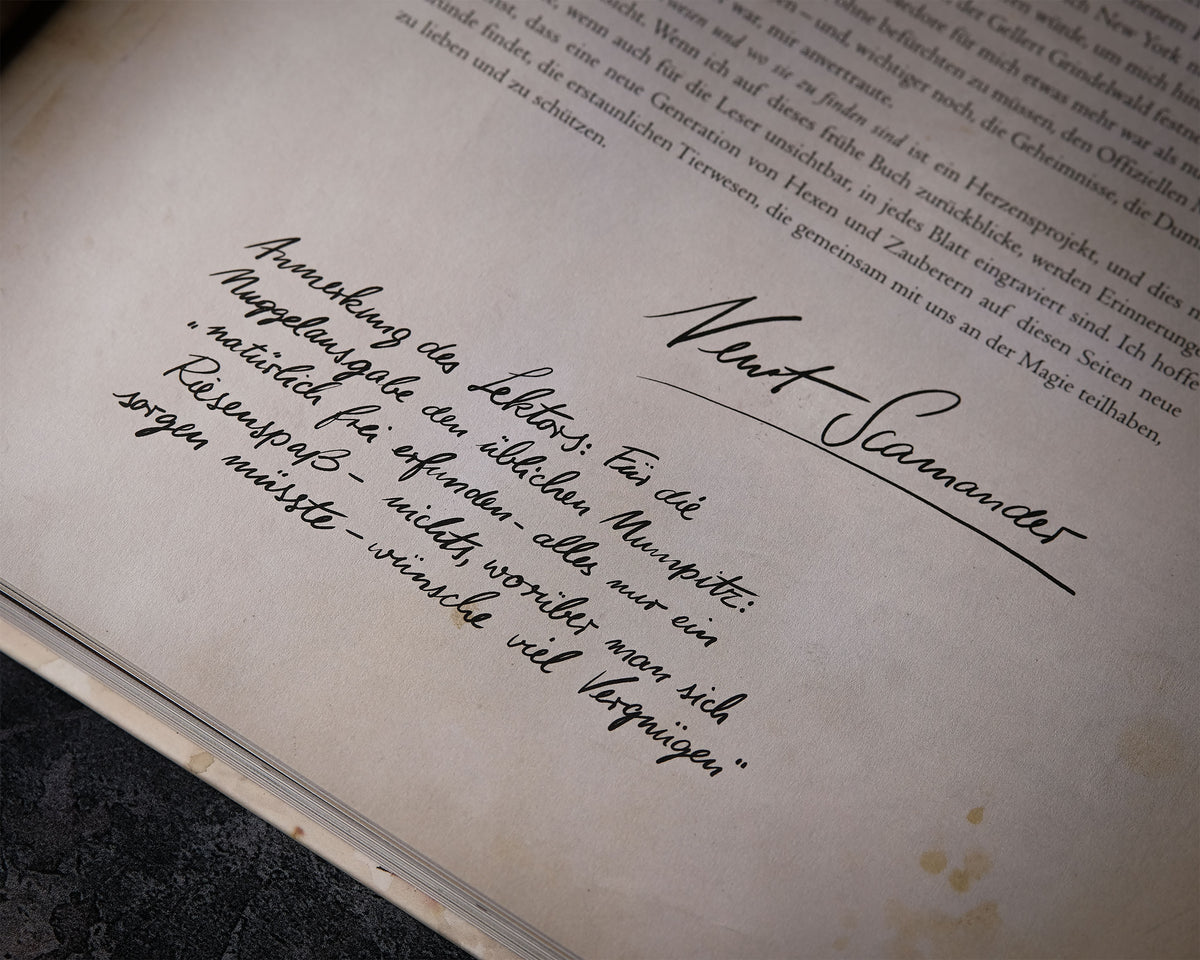 enem
ach New York
en würde, um mich
der Gellert Grindelwald festne
edore für mich etwas mehr war als nu
ohne befürchten zu müssen, den Offiziellen
en – und, wichtiger noch, die Geheimnisse, die Dum
war, mir anvertraute.
wesen und wo sie zu finden sind ist ein Herzensprojekt, und dies
icht. Wenn ich auf dieses frühe Buch zurückblicke, werden Erinnerunge
, wenn auch für die Leser unsichtbar, in jedes Blatt eingraviert sind. Ich hoffe
nst, dass eine neue Generation von Hexen und Zauberern auf diesen Seiten neue
ünde findet, die erstaunlichen Tierwesen, die gemeinsam mit uns an der Magie teilhaben,
zu lieben und zu schützen.
Newt Scamander
Anmerkung des Lektors: Für die
Muggelausgabe den üblichen Mumpitz:
"natürlich frei erfunden – alles nur ein
Riesenspaß – nichts, worüber man sich
sorgen müsste – wünsche viel Vergnügen"